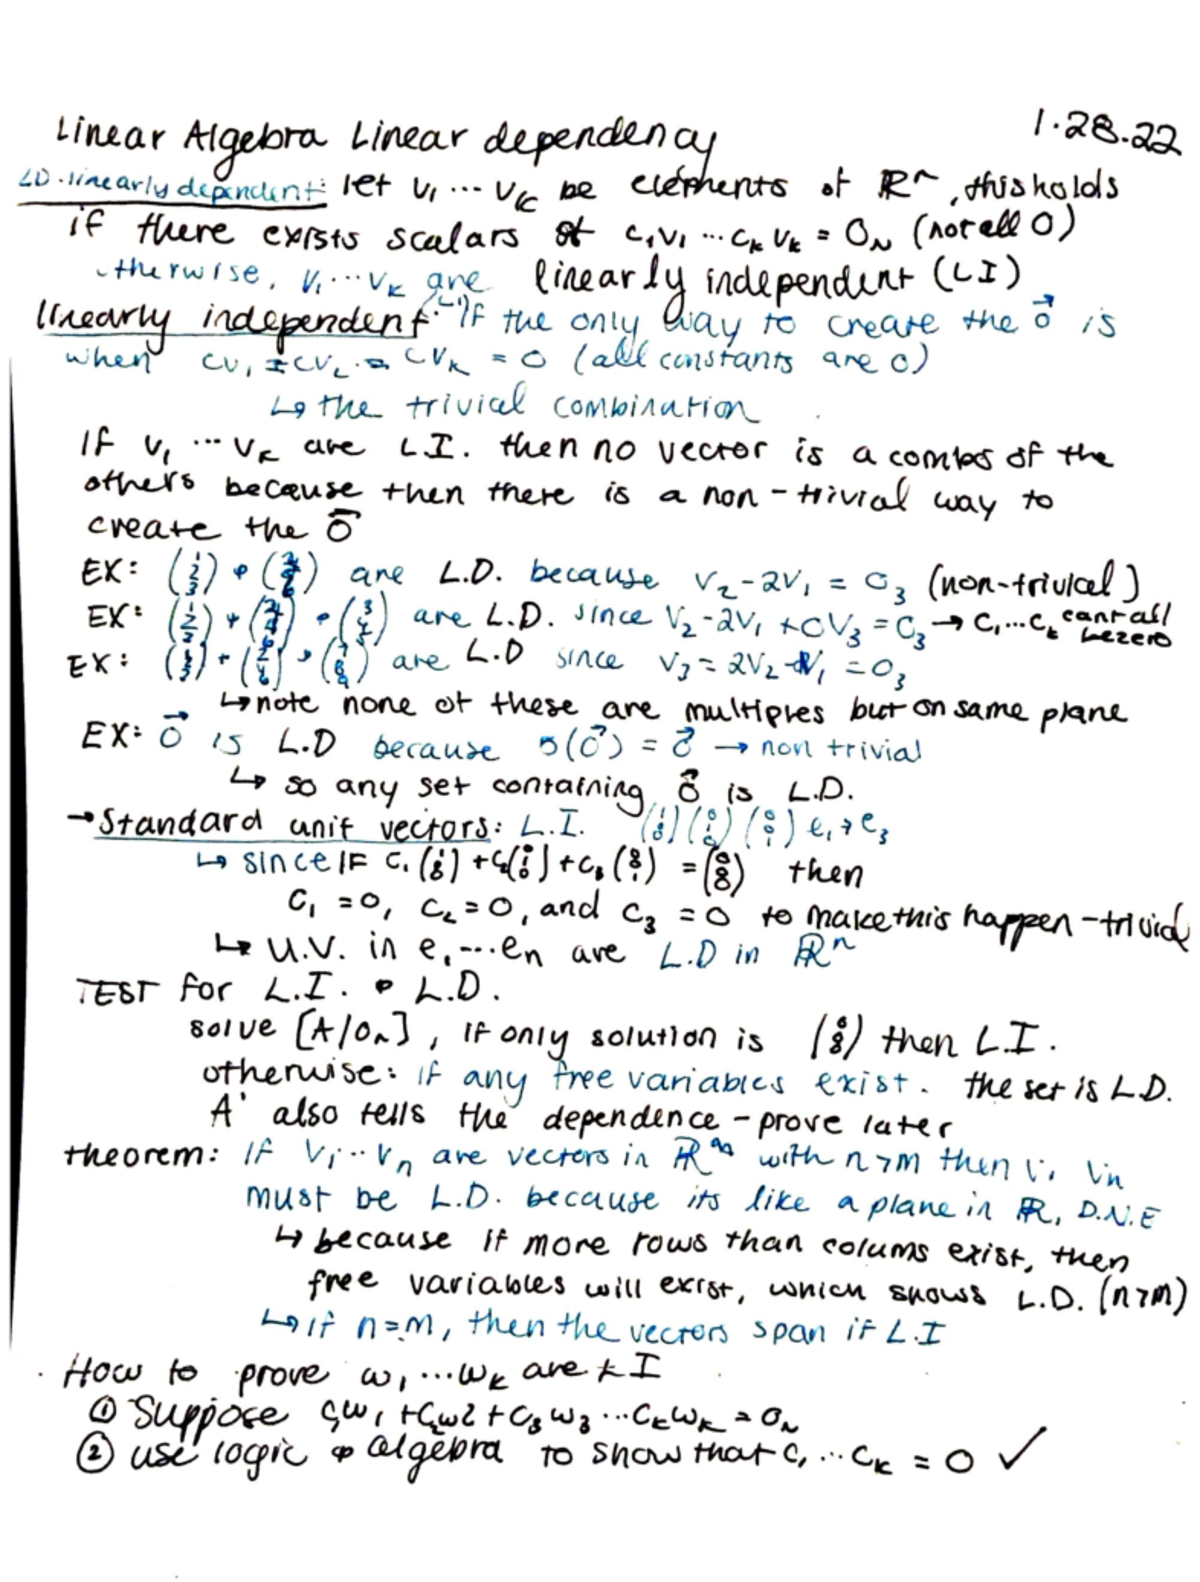 Linear Algebra Linear dependency 1.28.22
LD.linearly dependent: let v₁ ... vₖ be elements of ℝⁿ, this holds
if there exists scalars st c₁v₁ ... cₖvₖ = 0ₙ (not all 0)
otherwise, v₁...vₖ are linearly independent (LI)
linearly independent (LI): If the only way to create the 0⃗ is
when cv₁ + cv₂ ... cvₖ = 0 (all constants are 0)
↳ the trivial combination
If v₁ ... vₖ are L.I. then no vector is a combos of the
others because then there is a non-trivial way to
create the 0⃗
EX: (1 2 3) + (2 4 6) are L.D. because v₂-2v₁ = 0₃ (non-trivial)
EX: (1 2 3) + (2 4 6) + (3 4 5) are L.D. since v₂-2v₁ +0v₃ = 0₃ → c₁...cₖ cant all be zero
EX: + are L.D since v₃ = 2v₂ - v₁ = 0₃
↳ note none of these are multiples but on same plane
EX: 0⃗ is L.D because 5(0⃗) = 0⃗ → non trivial
↳ so any set containing 0⃗ is L.D.
→ Standard unit vectors: L.I. (1 0 0) (0 1 0) (0 0 1) e₁→e₃
↳ since IF c₁(1 0 0) + c₂(0 1 0) + c₃(0 0 1) = (0 0 0) then
c₁ = 0, c₂ = 0, and c₃ = 0 to make this happen - trivial
↳ U.V. in e₁...en are L.D in ℝⁿ
TEST for L.I. + L.D.
solve [A/0ₙ], if only solution is (0 0 0) then L.I.
otherwise: if any free variables exist. the set is L.D.
A' also tells the dependence - prove later
theorem: If v₁...vn are vectors in ℝᵐ with n>m then v₁ vn
must be L.D. because its like a plane in ℝ, D.N.E
↳ because if more rows than colums exist, then
free variables will exist, which shows L.D. (n>m)
↳ if n=m, then the vectors span if L.I
. How to prove w₁ ... wₖ are LI
① Suppose c₁w₁ + c₂w2 + c₃w₃ ... cₖwₖ = 0ₙ
② use logic + algebra to show that c₁ ... cₖ = 0 ✓